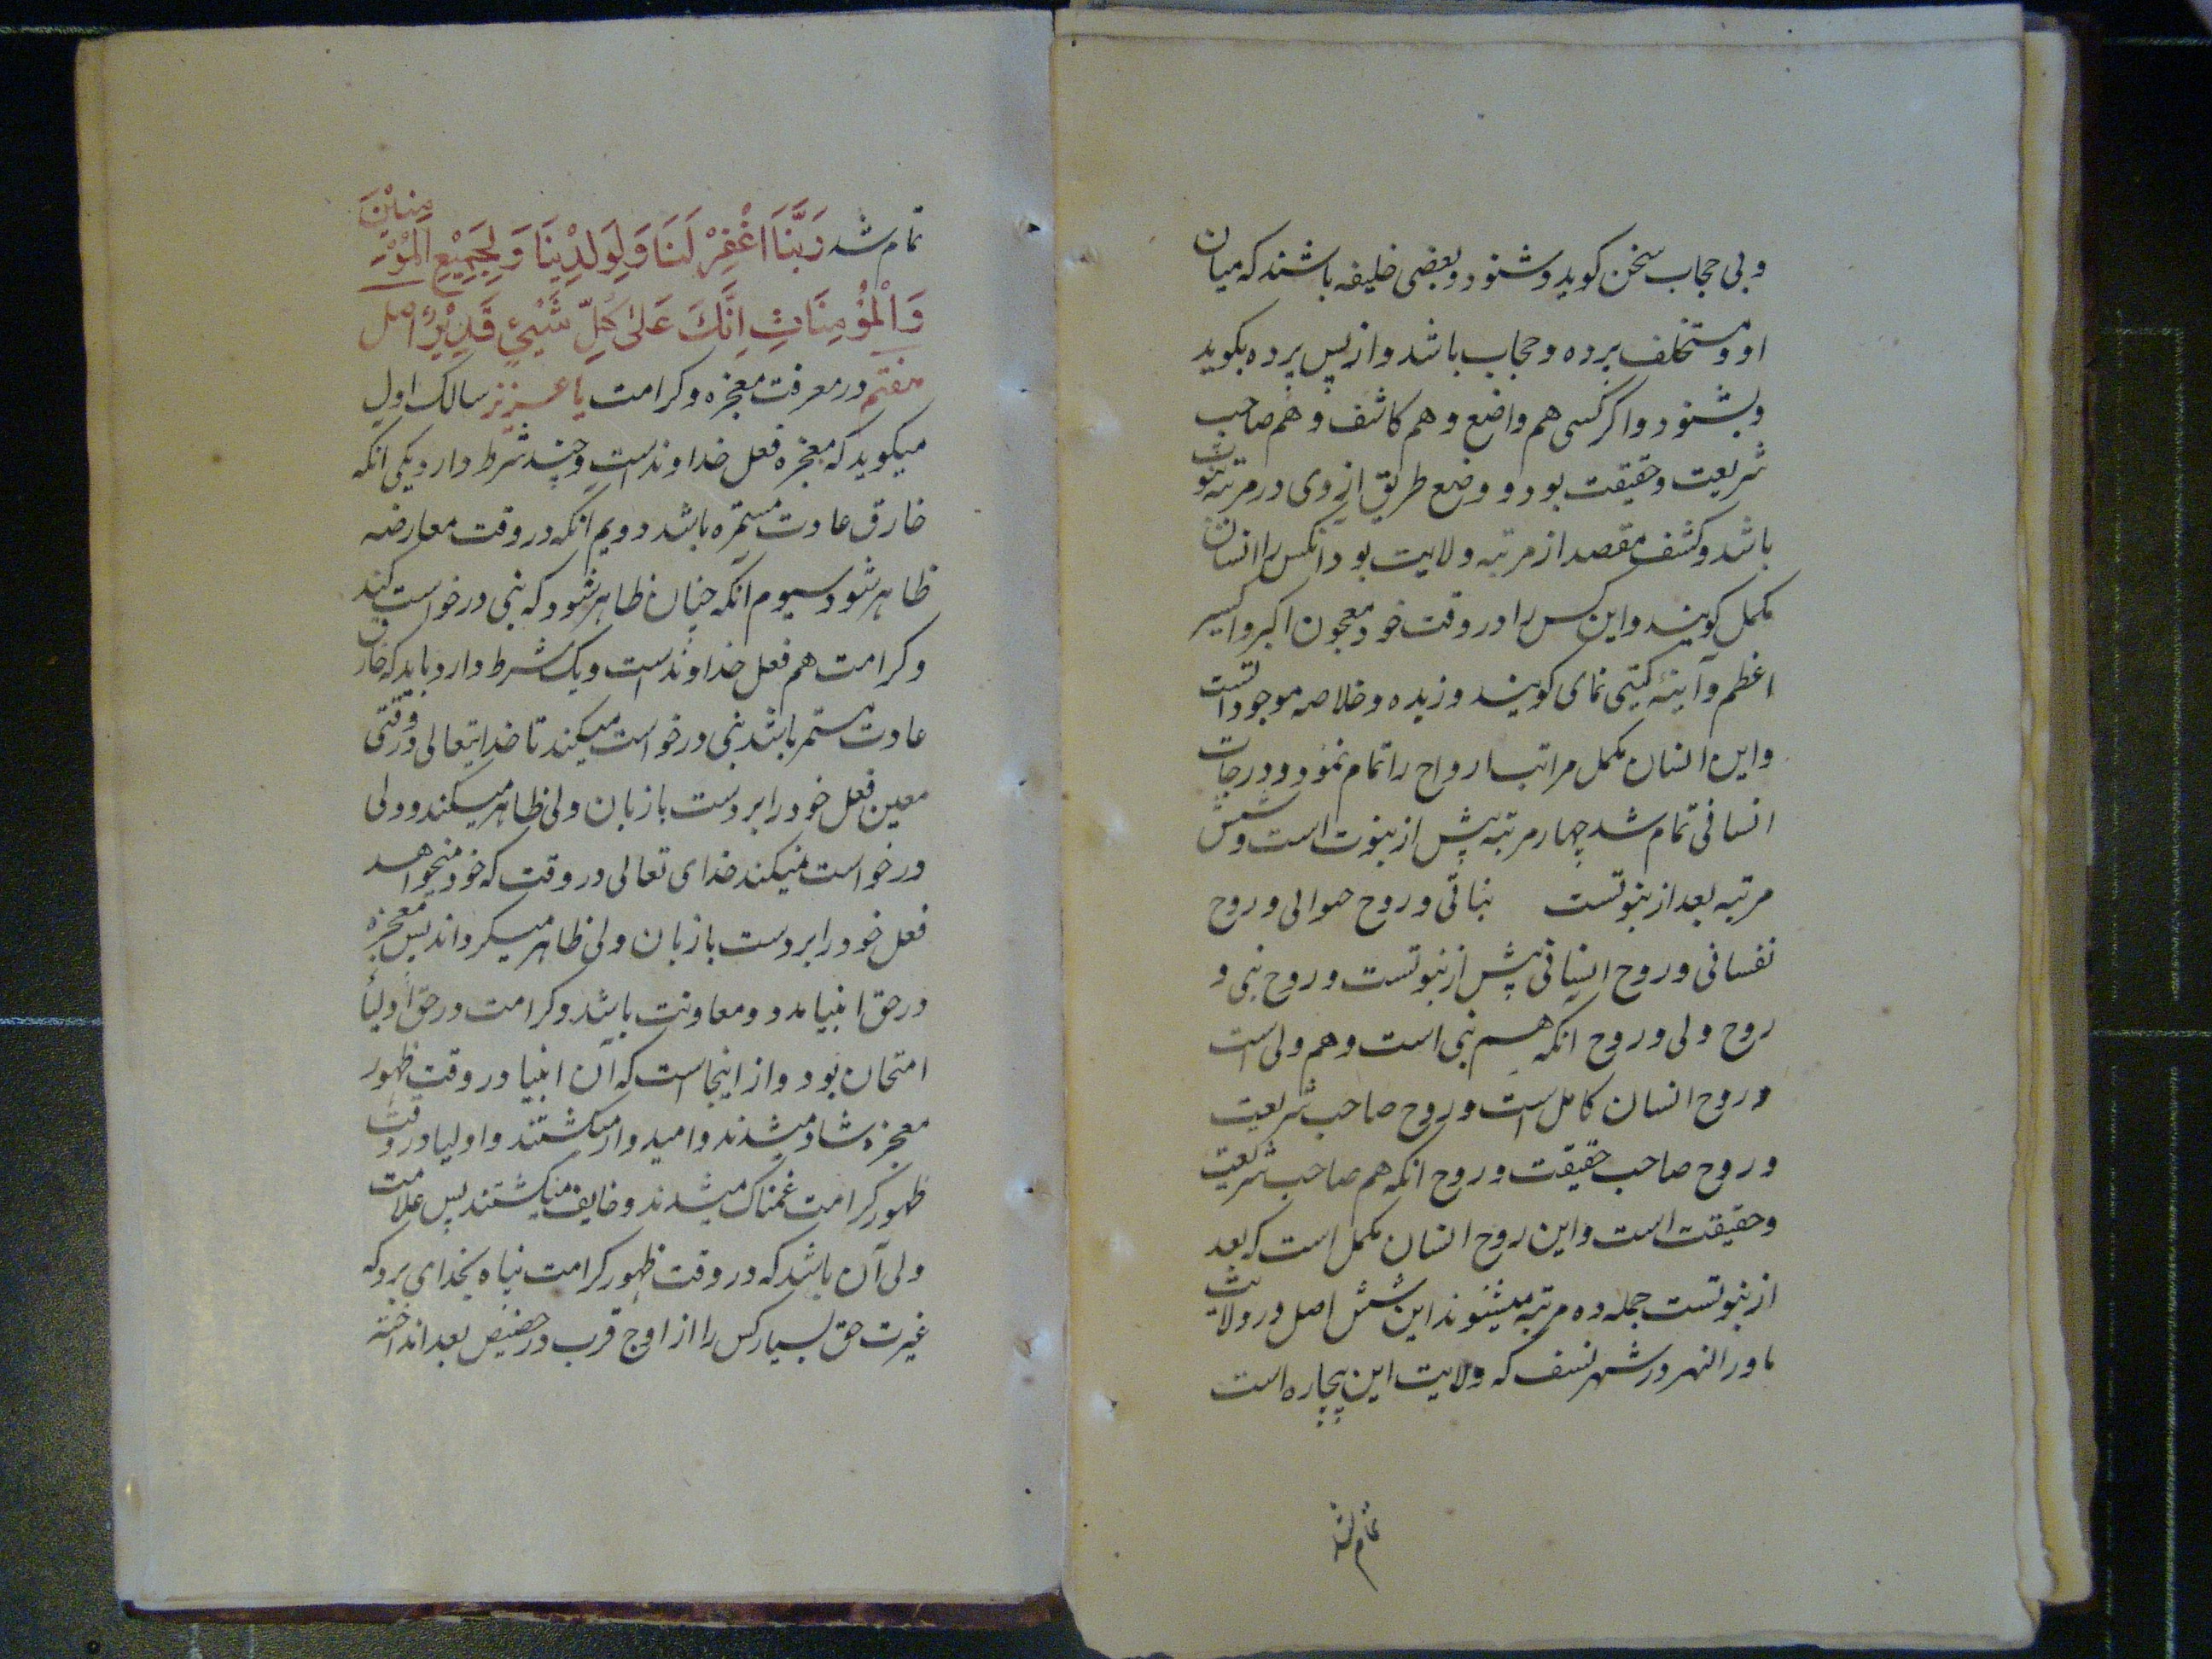 و بی حجاب سخن کوید و شنود و بعضی خلیفه باشند که میان
او و مستخلف پرده و حجاب باشد و از پس پرده بکوید
و بشنود و اکر کسی هم واضع و هم کاشف و هم صاحب
شریعت و حقیقت بود و وضع طریق از وی در مرتبه نبوت
باشد و کشف مقصد از مرتبه ولایت بود انکس را انسان
مکمل کویند و این کس را در وقت خود معجون اکبر و اکسیر
اعظم و آینه کیتی نمای کویند و زبده و خلاصه موجوداتست
و این انسان مکمل مراتب ارواح را تمام نمود و درجات
انسانی تمام شد چهار مرتبه پیش از نبوت است و شش
مرتبه بعد از نبوتست نباتی و روح حیوانی و روح
نفسانی و روح انسانی پیش از نبوتست و روح نبی و
روح ولی و روح انکه هم نبی است و هم ولی است
و روح انسان کامل است و روح صاحب شریعت
و روح صاحب حقیقت و روح انکه هم صاحب شریعت
و حقیقت است و این روح انسان مکمل است که بعد
از نبوتست جمله ده مرتبه میشوند این شش اصل در ولایت
ماورالنهر در شهر نسف که ولایت این بیچاره است
تمام شد
تمام شد رَبَّنَا اغْفِرْ لَنَا وَلِوَلِدِیْنَا وَلِجَمِیْعِ الْمُؤْمِنِیْنَ
وَالْمُؤْمِنَاتِ اِنَّکَ عَلیٰ کُلِّ شَیْئٍ قَدِیْرٌ اصل
هفتم در معرفت معجزه و کرامت یا عزیز سالک اول
میکوید که معجزه فعل خداوندست و چند شرط دارد یکی انکه
خارق عادت مستمره باشد دویم انکه در وقت معارضه
ظاهر شود سیوم آنکه چنان ظاهر شود که نبی درخواست کند
و کرامت هم فعل خداوندست و یک شرط دارد باید که خارق
عادت مستمر باشد نبی درخواست میکند تا خدایتعالی در وقتی
معین فعل خود را بر دست با زبان ولی ظاهر میکند و ولی
درخواست نمیکند خدای تعالی در وقت که خود میخواهد
فعل خود را بر دست با زبان ولی ظاهر میکرداند پس معجزه
در حق انبیا مدد و معاونت باشد و کرامت در حق اولیا
امتحان بود و از اینجاست که آن انبیا در وقت ظهور
معجزه شاد میشدند و امیدوار میکشتند و اولیا در وقت
ظهور کرامت غمناک میشدند و خایف میکشتند پس علامت
ولی آن باشد که در وقت ظهور کرامت پناه بخدای برد که
غیرت حق بسیار کس را از اوج قرب در حضیض بعد انداخته